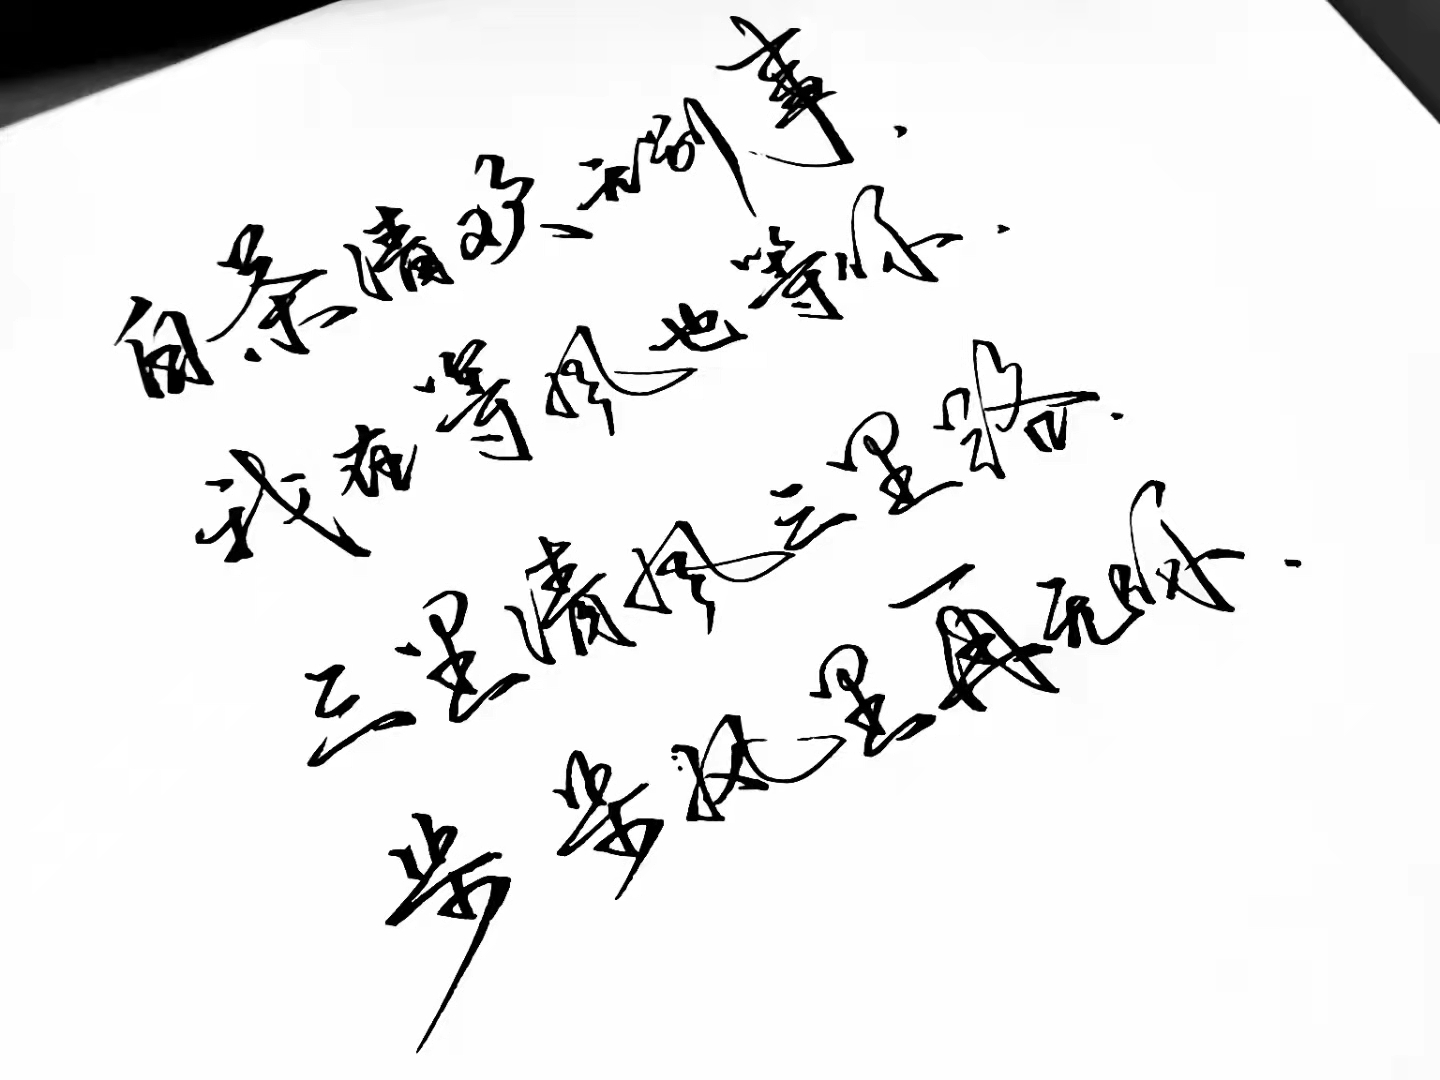 白茶清欢无别事.
我在等风也等你.
三里清风三里路.
步步风里再无你.